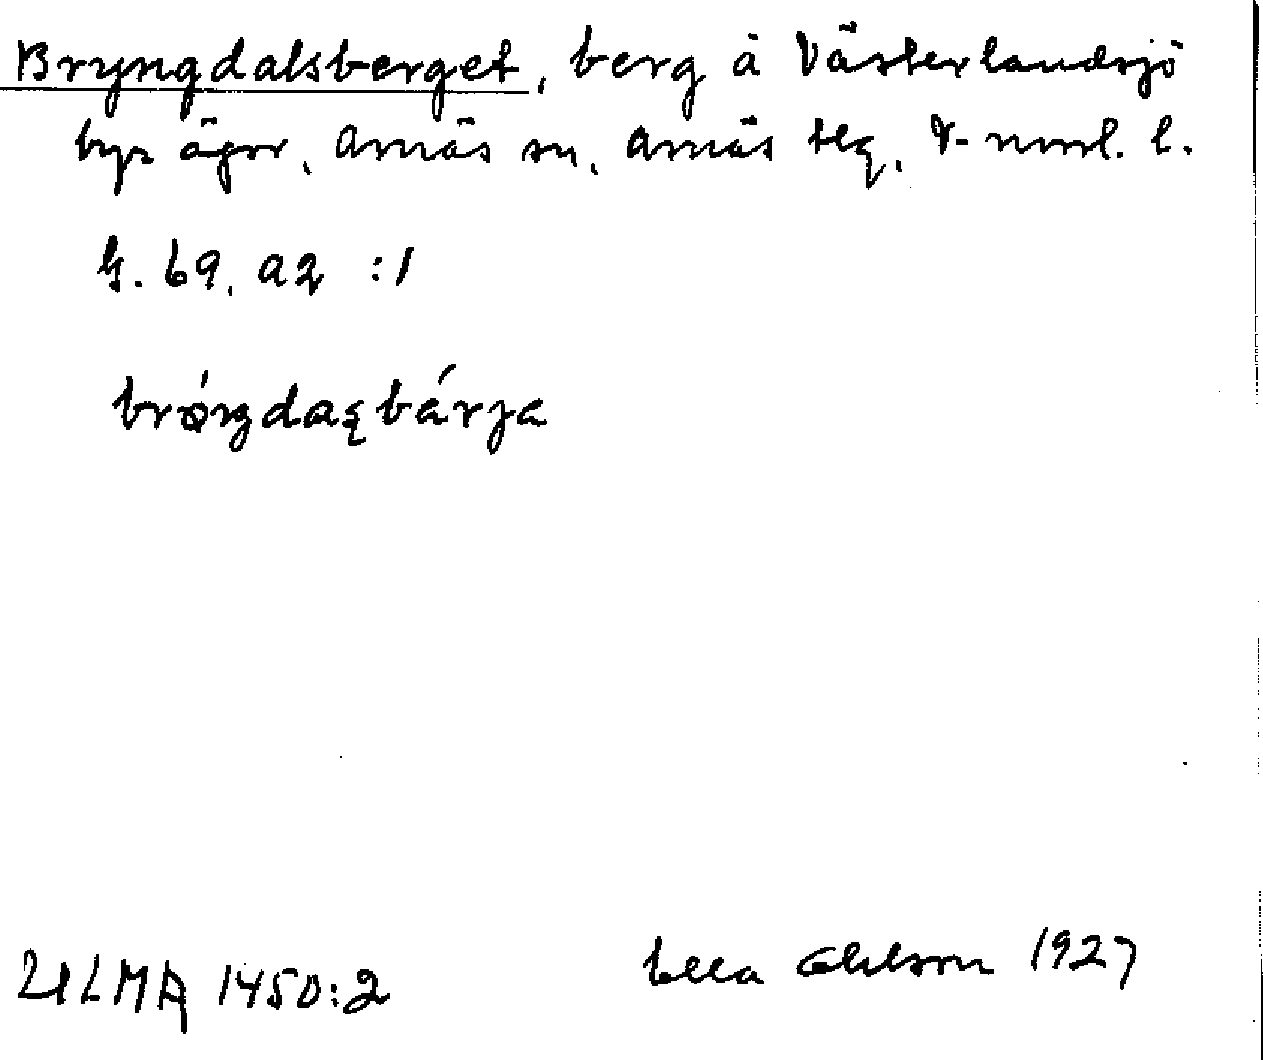 Bryngdalsberget, berg å Västerlandsjö
bys ägor, Arnäs sn, Arnäs tlg, V-norrl. l.
G. 69. a2 :1
brǿŋdaʂbárja
ULMA 1450:2
Ella Ohlson 1927